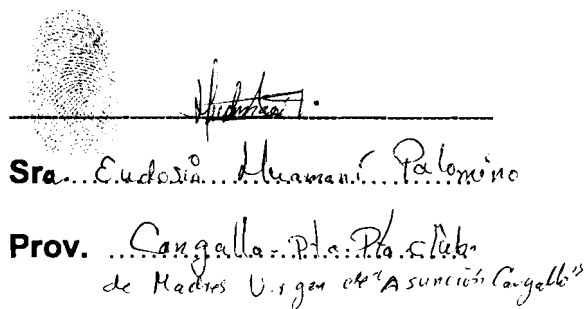 Huamaní
Sra. Eudosia Huamaní Palomino
Prov. Cangallo Pta Pta club
de Madres Virgen de "Asunción Cangallo"